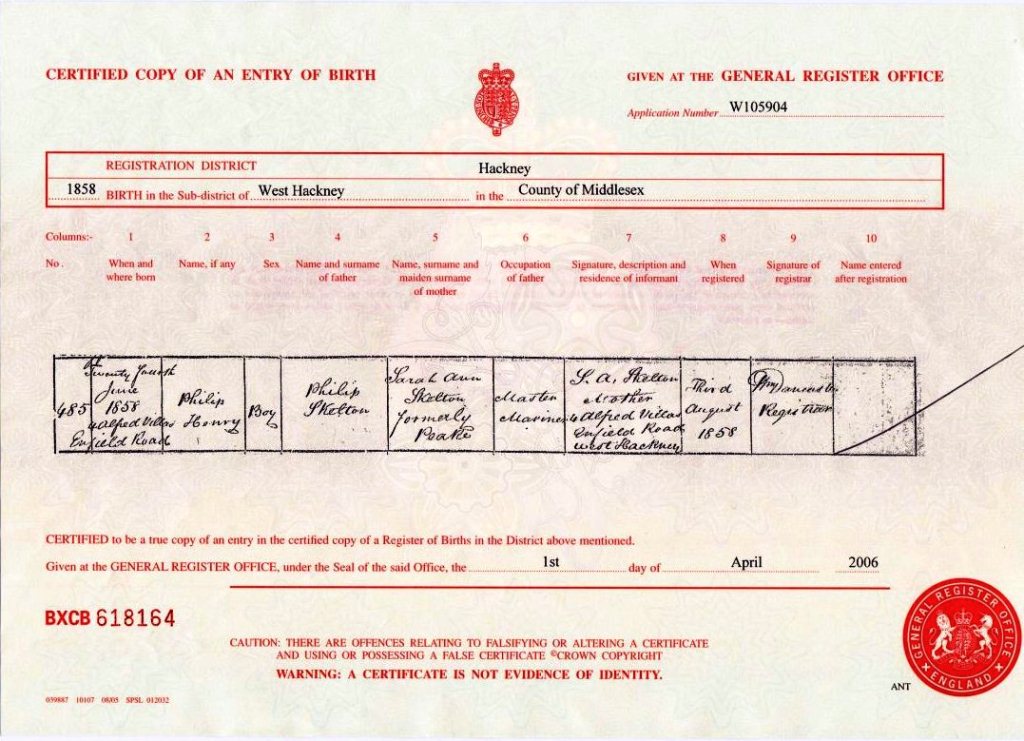 CERTIFIED COPY OF AN ENTRY OF BIRTH
GIVEN AT THE GENERAL REGISTER OFFICE
Application Number W105904
REGISTRATION DISTRICT Hackney
1858 BIRTH in the Sub-district of West Hackney in the County of Middlesex
Columns:- 1 2 3 4 5 6 7 8 9 10
No. When and where born Name, if any Sex Name and surname of father Name, surname and maiden surname of mother Occupation of father Signature, description and residence of informant When registered Signature of registrar Name entered after registration
485
Twenty fourth
June
1858
4 Alfred Villas
Enfield Road
Philip
Henry
Boy
Philip
Skelton
Sarah Ann
Skelton
formerly
Peake
Master
Mariner
S. A. Skelton
Mother
4 Alfred Villas
Enfield Road
West Hackney
Third
August
1858
Registrar
CERTIFIED to be a true copy of an entry in the certified copy of a Register of Births in the District above mentioned.
Given at the GENERAL REGISTER OFFICE, under the Seal of the said Office, the 1st day of April 2006
BXCB 618164
CAUTION: THERE ARE OFFENCES RELATING TO FALSIFYING OR ALTERING A CERTIFICATE
AND USING OR POSSESSING A FALSE CERTIFICATE ©CROWN COPYRIGHT
WARNING: A CERTIFICATE IS NOT EVIDENCE OF IDENTITY.
GENERAL REGISTER OFFICE
ENGLAND
ANT
059887 10107 08/05 SPSL 012032